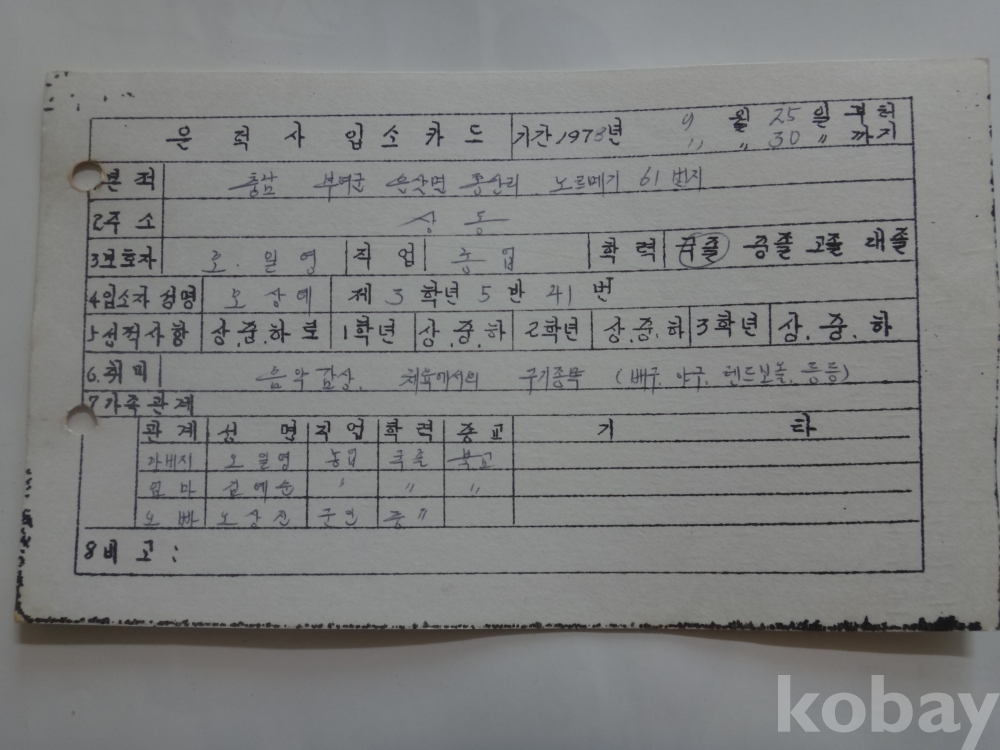 은덕사 입소카드 기간 1978년 9월 25일 부터
〃 〃 30 〃 까지
본적 충남 부여군 은산면 홍산리 노르메기 61번지
2주소 상동
3보호자 오.일영 직업 농업 학력 국졸 중졸 고졸 대졸
4입소자 성명 오상예 제 3학년 5반 41번
5성적사항 상.중.하로 1학년 상.중.하 2학년 상.중.하 3학년 상.중.하
6.취미 음악감상. 체육에서의 구기종목 (배구. 야구. 핸드보올. 등등)
7가족관계
관계 성명 직업 학력 종교 기타
아버지 오일영 농업 국졸 불교
엄마 예순 〃 〃 〃
오빠 오상진 군인 중〃
8비고:
kobay